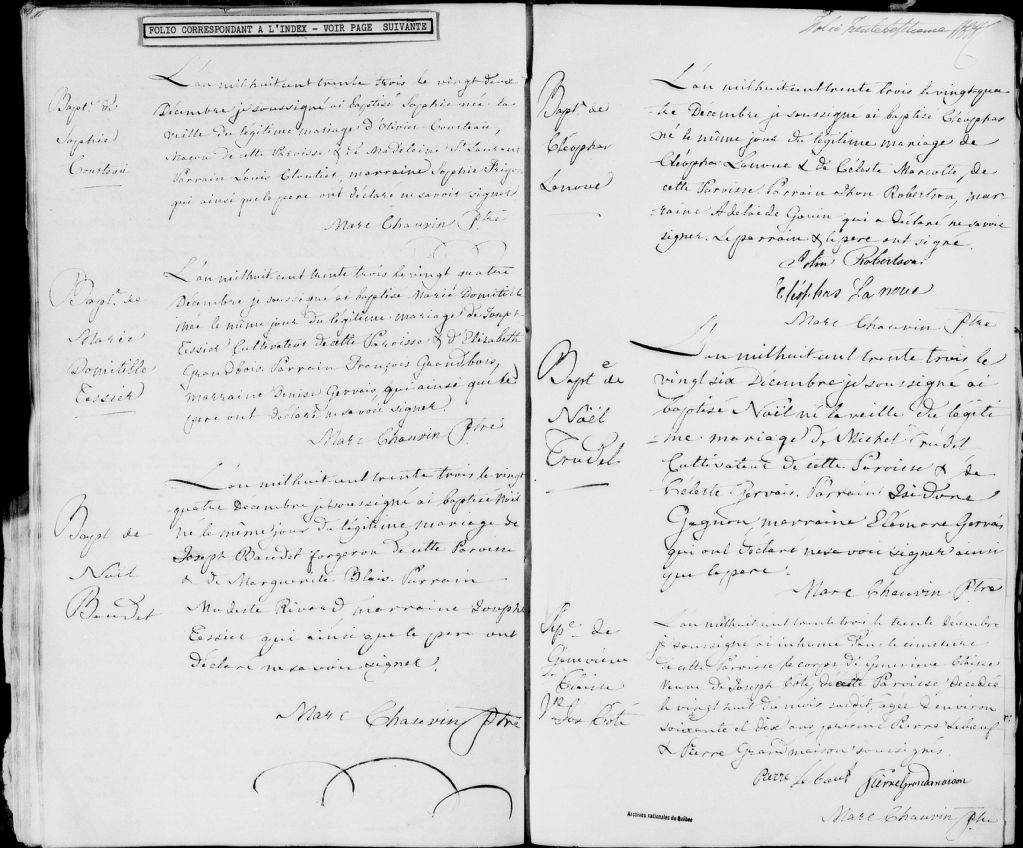 FOLIO CORRESPONDANT A L'INDEX - VOIR PAGE SUIVANTE
Bapt. de
Sophie
Courteau
L'an mil huit cent trente trois le vingt deux
Décembre je soussigné ai baptisé Sophie née la
veille du légitime mariage d'Olivier Courteau,
Maçon de cette Paroisse & de Madeleine St. Laurent
Parrain Louis Cloutier, marraine Sophie
qui ainsi que le pere ont déclaré ne savoir signer
Marc Chauvin Ptre
Bapt. de
Marie
Domitille
Tessier
L'an mil huit cent trente trois le vingt quatre
Décembre je soussigné ai baptisé Marie Domitille
née le même jour du légitime mariage de Joseph
Tessier Cultivateur de cette Paroisse & d'Elizabeth
Grandbois. Parrain François Grandbois,
marraine Denise Gervais, qui ainsi que le
pere ont déclaré ne savoir signer.
Marc Chauvin Ptre
Bapt. de
Noël
Baudet
L'an mil huit cent trente trois le vingt
quatre Décembre je soussigné ai baptisé Noël
né le même jour du légitime mariage de
Joseph Baudet forgeron de cette Paroisse
& de Marguerite Blais. Parrain
Modeste Rivard, marraine Josephe
Tessier qui ainsi que le pere ont
déclaré ne savoir signer.
Marc Chauvin Ptre
Folio trente septieme
Bapt. de
Cléophas
Lanoue
L'an mil huit cent trente trois le vingt qua-
-tre Décembre je soussigné ai baptisé Cléophas
né le même jour du légitime mariage de
Cléophas Lanoue & de Céleste Marcotte, de
cette Paroisse. Parrain John Robertson, mar-
-raine Adelaïde Gouin qui a déclaré ne savoir
signer. Le parrain & le pere ont signé.
John Robertson.
Cléophas Lanoue
Marc Chauvin Ptre
Bapt. de
Noël
Trudel
L'an mil huit cent trente trois le
vingt six Décembre je soussigné ai
baptisé Noël né la veille du légiti
-me mariage de Michel Trudel
Cultivateur de cette Paroisse & de
Celeste Gervais. Parrain Isidore
Gagnon, marraine Eléonore Gervais
qui ont déclaré ne savoir signer ainsi
que le pere.
Marc Chauvin Ptre
Sep. de
Geneviève
Claisse
Ve. Jos Coté
L'an mil huit cent trente trois le trente Décembre
je soussigné ai inhumé dans le cimetiere
de cette Paroisse le corps de Genevieve Claisse
veuve de Joseph Coté, de cette Paroisse decedée
le vingt huit du mois susdit, agée d'environ
soixante et dix ans, présens Pierre Lebeuf
& Pierre Grandmaison soussignés.
Pierre Lebeuf Pierre Grondmaison
Marc Chauvin Ptre
Archives nationales du Québec